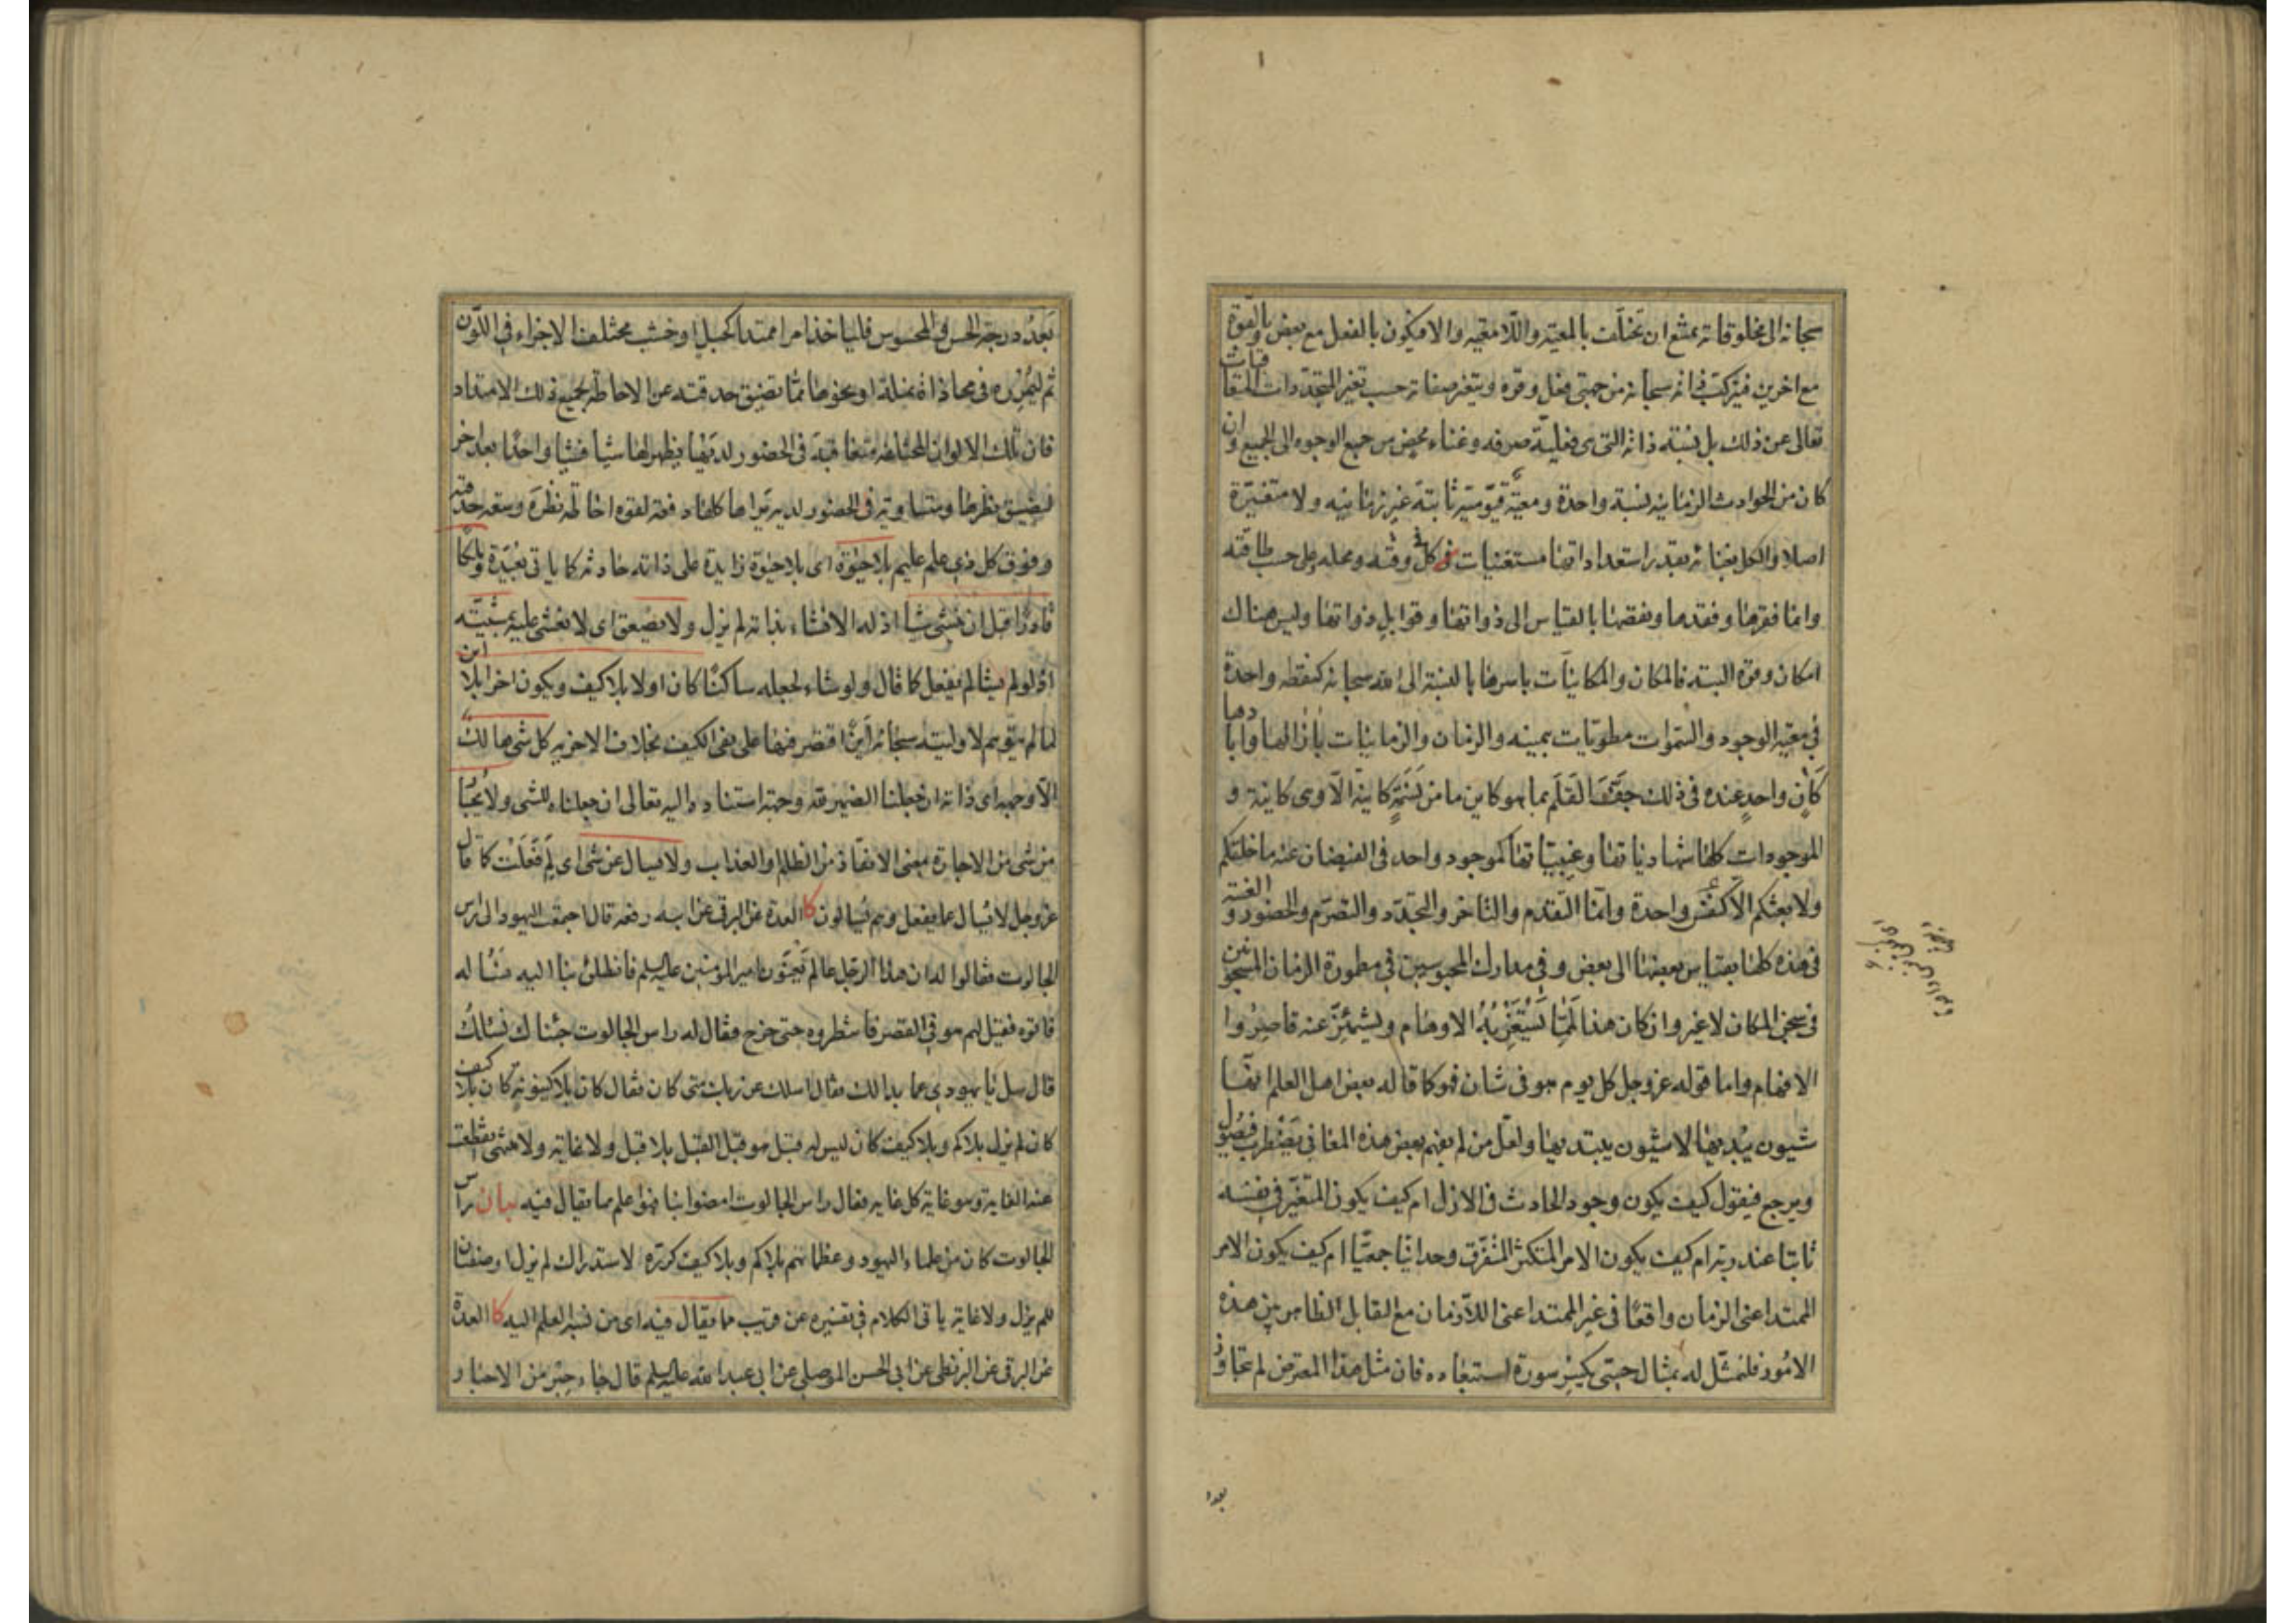 سبحانه الى مخلوقاته يمتنع ان تختلف بالمعية واللامعية والا فيكون بالفعل مع بعض وبالقوة
مع اخرين فيتركب ذاته سبحانه من جهتي فعل وقوة ويتغير صفاته حسب تغير المتجددات المتعاقبات
تعالى عن ذلك بل نسبة ذاته التي هى فعلية صرفه وغناء محض من جميع الوجوه الى الجميع وان
كان من الحوادث الزمانيه نسبة واحدة ومعيّة قيّوميّة ثابتة غير زمانيه ولا متغيّرة
اصلا والكل بغنائه بقدر استعداداتها مستغنيات فى كلٌ وقته ومحله على حسب طاقته
وانما فقرها وفقدها ونقصها بالقياس الى ذواتها وقوابل ذواتها وليس هناك
امكان وقوة البتة فالمكان والمكانيّات باسرها بالنسبة الى الله سبحانه كنقطه واحدة
في معية الوجود والسموات مطويّات بيمينه والزمان والزمانيّات بازالها وابادها
كان واحدٍ عنده فى ذلك جفّ القلم بما هو كاين ما من نسمة كاينة الّا وهى كاينة و
الموجودات كلها شهاديّاتها وغيبيّاتها كموجود واحد فى الفيضان عنه ما خلقكم
ولا بعثكم الا كنفس واحدة وانما التقدم والتاخر والتجدّد والتصرّم والحضور والغيبة
فى هذه كلها بقياس بعضها الى بعض و فى مدارك المحبوسين في مطمورة الزمان المسجونين
فى سجن المكان لا غير وان كان هذا لمّا يستغربه الاوهام ويشمئزّ عنه قاصروا
الافهام واما قوله عز وجل كل يوم هو فى شان فهو كما قاله بعض اهل العلم انها
شيون يبديها لا شيون يبتديها ولعل من لم يفهم بعض هذه المعاني يضطرب فيصول
ويرجع فيقول كيف يكون وجود الحادث فى الازل ام كيف يكون المتغيّر فى نفسه
ثابتا عند ربه ام كيف يكون الامر المتكثر المتفرّق وحدانيّا جمعيّا ام كيف يكون الامر
الممتد اعنى الزمان واقعًا فى غير الممتد اعنى اللازمان مع التقابل الظاهر بين هذه
الامور فلنمثّل له بمثال حسّى يكسر سورة استبعاده فان مثل هذا المعترض لم يتجاوز
بعد
بعدُ درجة الحس والمحسوس فلياخذ امرا ممتدا كحبل او خشب مختلف الاجزاء فى اللون
ثم ليمرره فى محاذاة نملة او نحوها مما تضيق حدقته عن الاحاطة بجميع ذلك الامتداد
فان تلك الالوان المختلفة متعاقبة فى الحضور لديها يظهر لها شيئا فشيئا واحدًا بعد اخر
لضيق نظرها ومتساوية فى الحضور لديه يراها كلها دفعة لقوه احاطة نظره وسعة حدقته
وفوق كل ذي علم عليم بلا حيٰوة اى بلا حيٰوة زايدة على ذاته حادثة كما ياتى نعيده وملكا
قادرًا قبل ان ينشى شيئا اذ له الانشاء بذاته لم يزل ولا يصعق اى لا يغشى عليه
اذ لو لم يشا لم يفعل كما قال ولو شاء لجعله ساكنًا كان اولا بلا كيف ويكون اخرا بلا اين
لما لم يتوهم لاوليته سبحانه اينًا اقتصر فيها على نفى الكيف بخلاف الاخرية كل شى هالك
الّا وجهه اى ذاته ان جعلنا الضمير له وجهة استناده اليه تعالى ان جعلناه للشى ولا
من شى من الاجارة بمعنى الانقاذ من الظلم والعذاب ولا يسال عن شى اى لم فعلت كما قال
عز وجل لا يسال عما يفعل وهم يسالون كا العدة عن البرقى عن ابيه رفعه قال اجتمعت اليهود الى راس
الجالوت فقالوا له ان هذا الرجل عالم يعنون امير المؤمنين عليه السلم فانطلق بنا اليه نسأله
فاتوه فقيل لهم هو فى القصر فانتظروه حتى خرج فقال له راس الجالوت جئناك نسئلك
قال سل يا يهودى عما بدا لك فقال اسلك عن ربك متى كان فقال كان بلا كينونة كان بلا كيف
كان لم يزل بلا كم وبلا كيف كان ليس له قبل هو قبل القبل بلا قبل ولا غاية ولا منتهى انقطعت
عنه الغاية وهو غاية كل غاية فقال راس الجالوت امضوا بنا فهو اعلم مما يقال فيه بيان راس
الجالوت كان من علماء اليهود وعظمائهم بلا كم وبلا كيف كرره لاستدراك لم يزل او صفتان
للم يزل ولا غاية ياتى الكلام فى تفسيره عن قريب مما يقال فيه اى من نسبة العلم اليه كا العدة
عن البرقى عن البزنطى عن ابى الحسن الموصلى عن ابى عبد الله عليه السلم قال جاء حبر من الاحبار